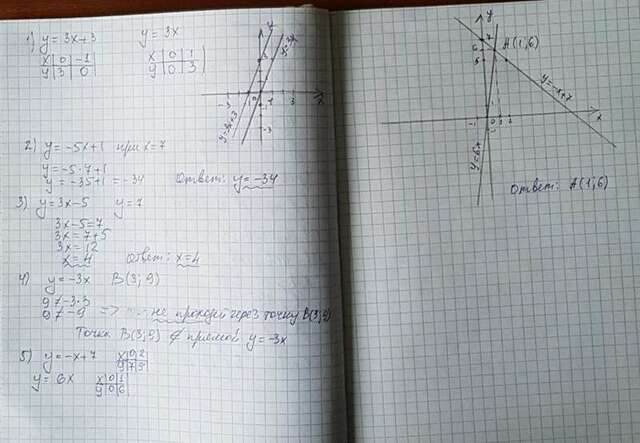 1) y = 3x+3 y = 3x
x 0 -1
y 3 0
x 0 1
y 0 3
y=3x+3
y=3x
2) y = -5x+1 при x=7
y = -5·7+1
y = -35+1 = -34 Ответ: y = -34
3) y = 3x-5 y = 7
3x-5=7
3x = 7+5
3x = 12
x = 4 Ответ: x = 4
4) y = -3x B(3; 9)
9 ≠ -3·3
9 ≠ -9 => не проходит через точку B(3;9)
Точка B(3;9) ∉ прямой y = -3x
5) y = -x+7
x 0 2
y 7 5
y = 6x
x 0 1
y 0 6
y
7
6
5
A(1;6)
y=-x+7
x
-1 0 1 2
y=6x
Ответ: A(1;6)